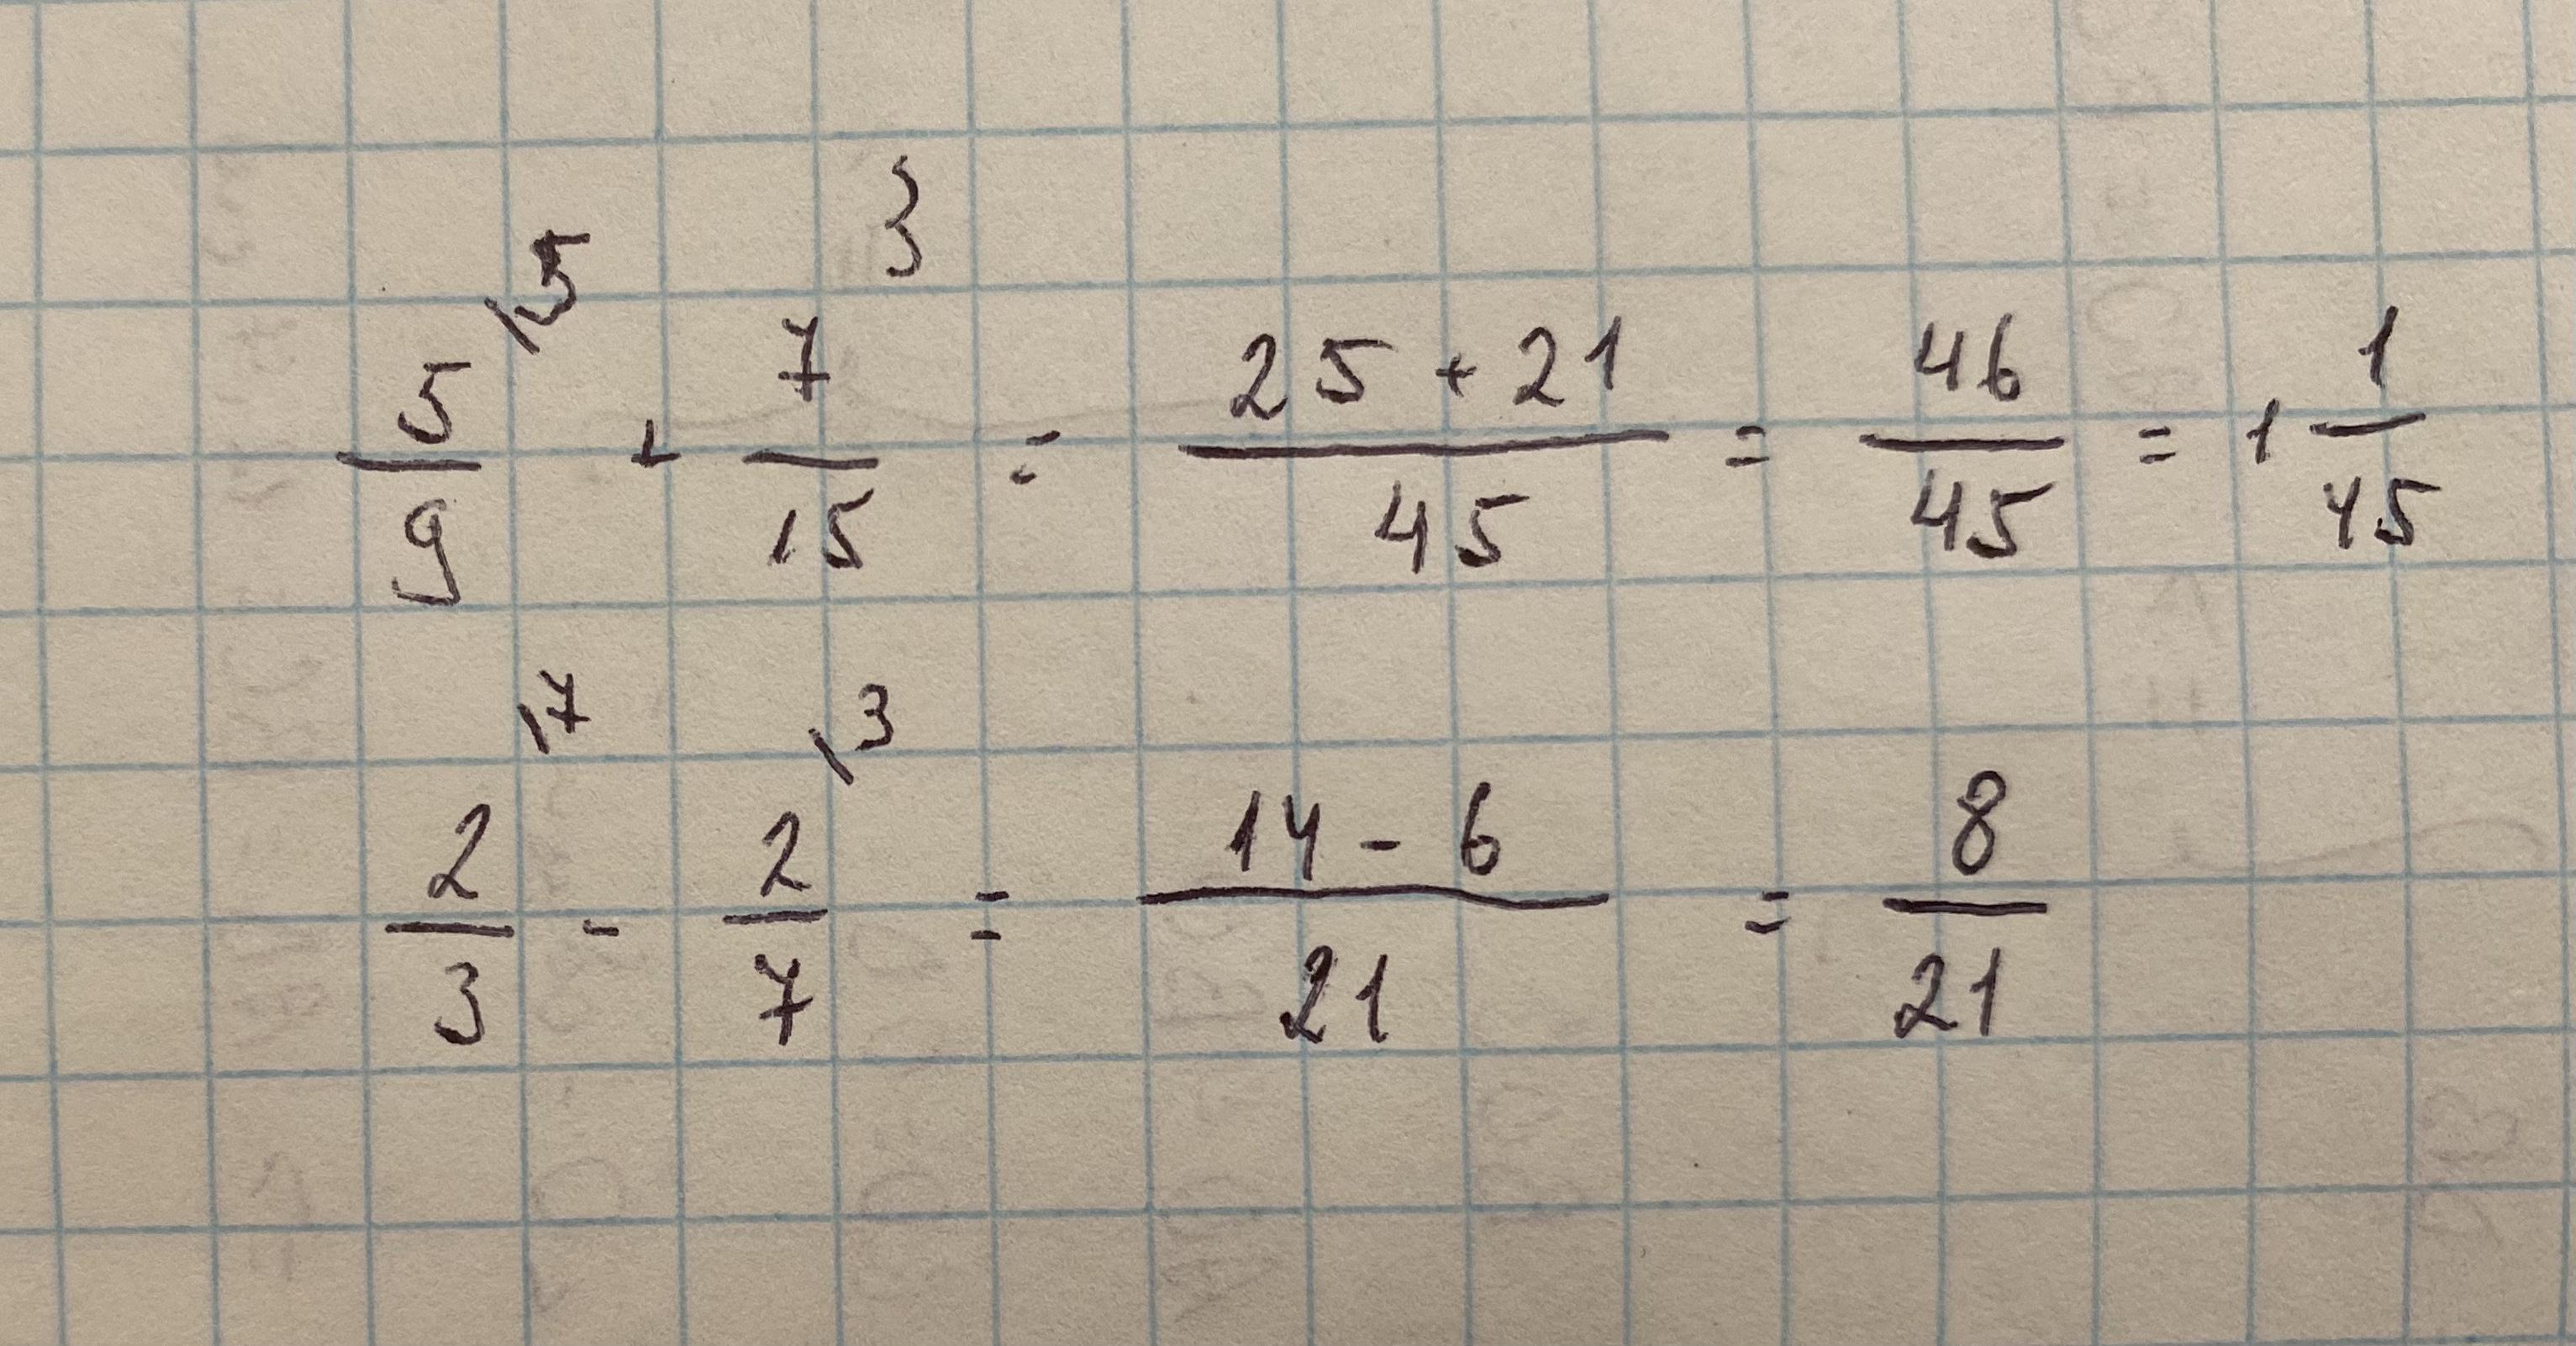 5/9 \5 + 7/15 3 = 25+21/45 = 46/45 = 1 1/45
2/3 \7 - 2/7 \3 = 14-6/21 = 8/21